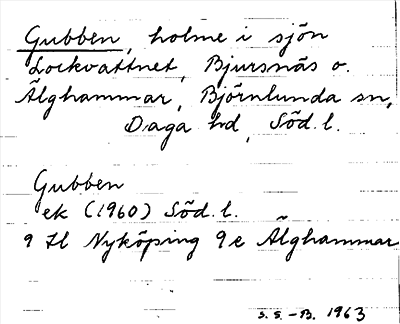 Gubben, holme i sjön
Lockvattnet, Bjursnäs o.
Älghammar, Björnlunda sn,
Daga hd, Söd. l.
Gubben
ek (1960) Söd. l.
9 H Nyköping 9 e Älghammar
S. S. - B. 1963